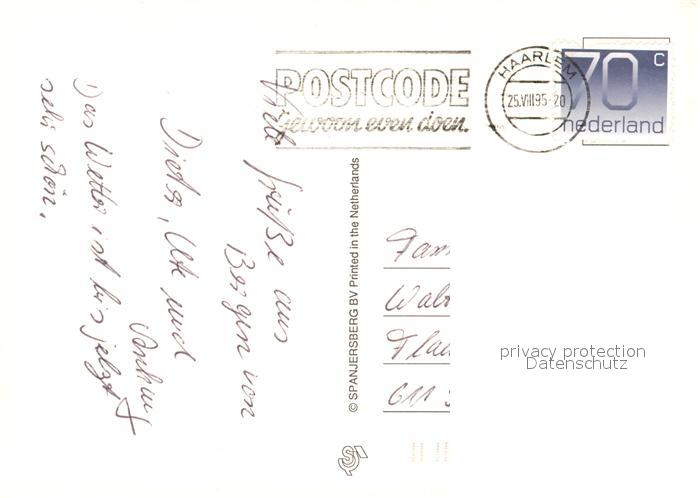 Viele Grüße aus
Bergen von
Dieter, Ute und
Das Wetter ist bis jetzt
sehr schön.
POSTCODE
gewoon even doen.
HAARLEM
25.VIII95-20
70 c
nederland
© SPANJERSBERG BV Printed in the Netherlands
Fam
Flau
611
privacy protection
Datenschutz